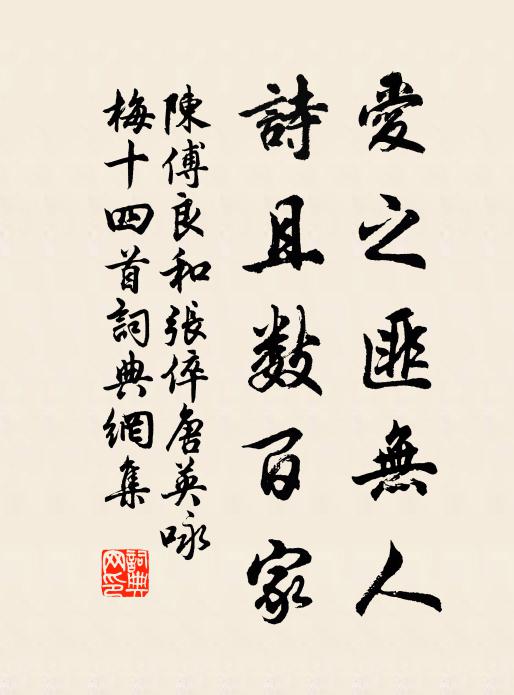 愛之匪無人
詩且數百家
陳傅良和張倅唐英咏
梅十四首詞典網集
詞典
网印